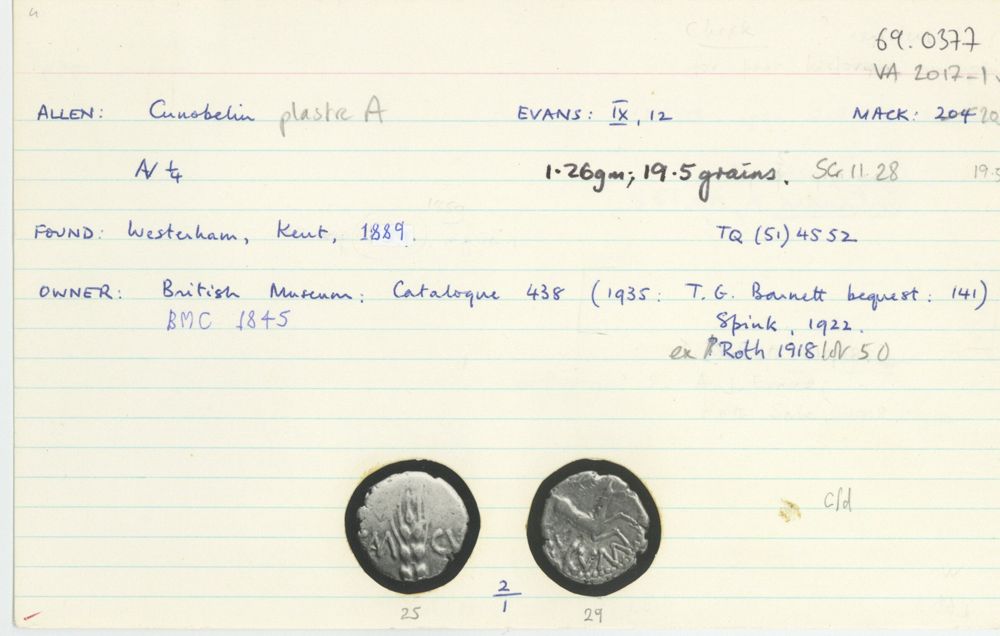 69.0377
VA 2017-1
ALLEN: Cunobelin plastic A EVANS: IX, 12 MACK: 204
A/ 1/4 1.26gm; 19.5 grains. SCr. 11.28 19.5
FOUND: Westerham, Kent, 1889. TQ (51) 4552
OWNER: British Museum: Catalogue 438 (1935: T. G. Barnett bequest: 141)
BMC 1845 Spink, 1922.
ex Roth 1918 lot 50
c/d
CAM CV
CVN
2/1
25 29